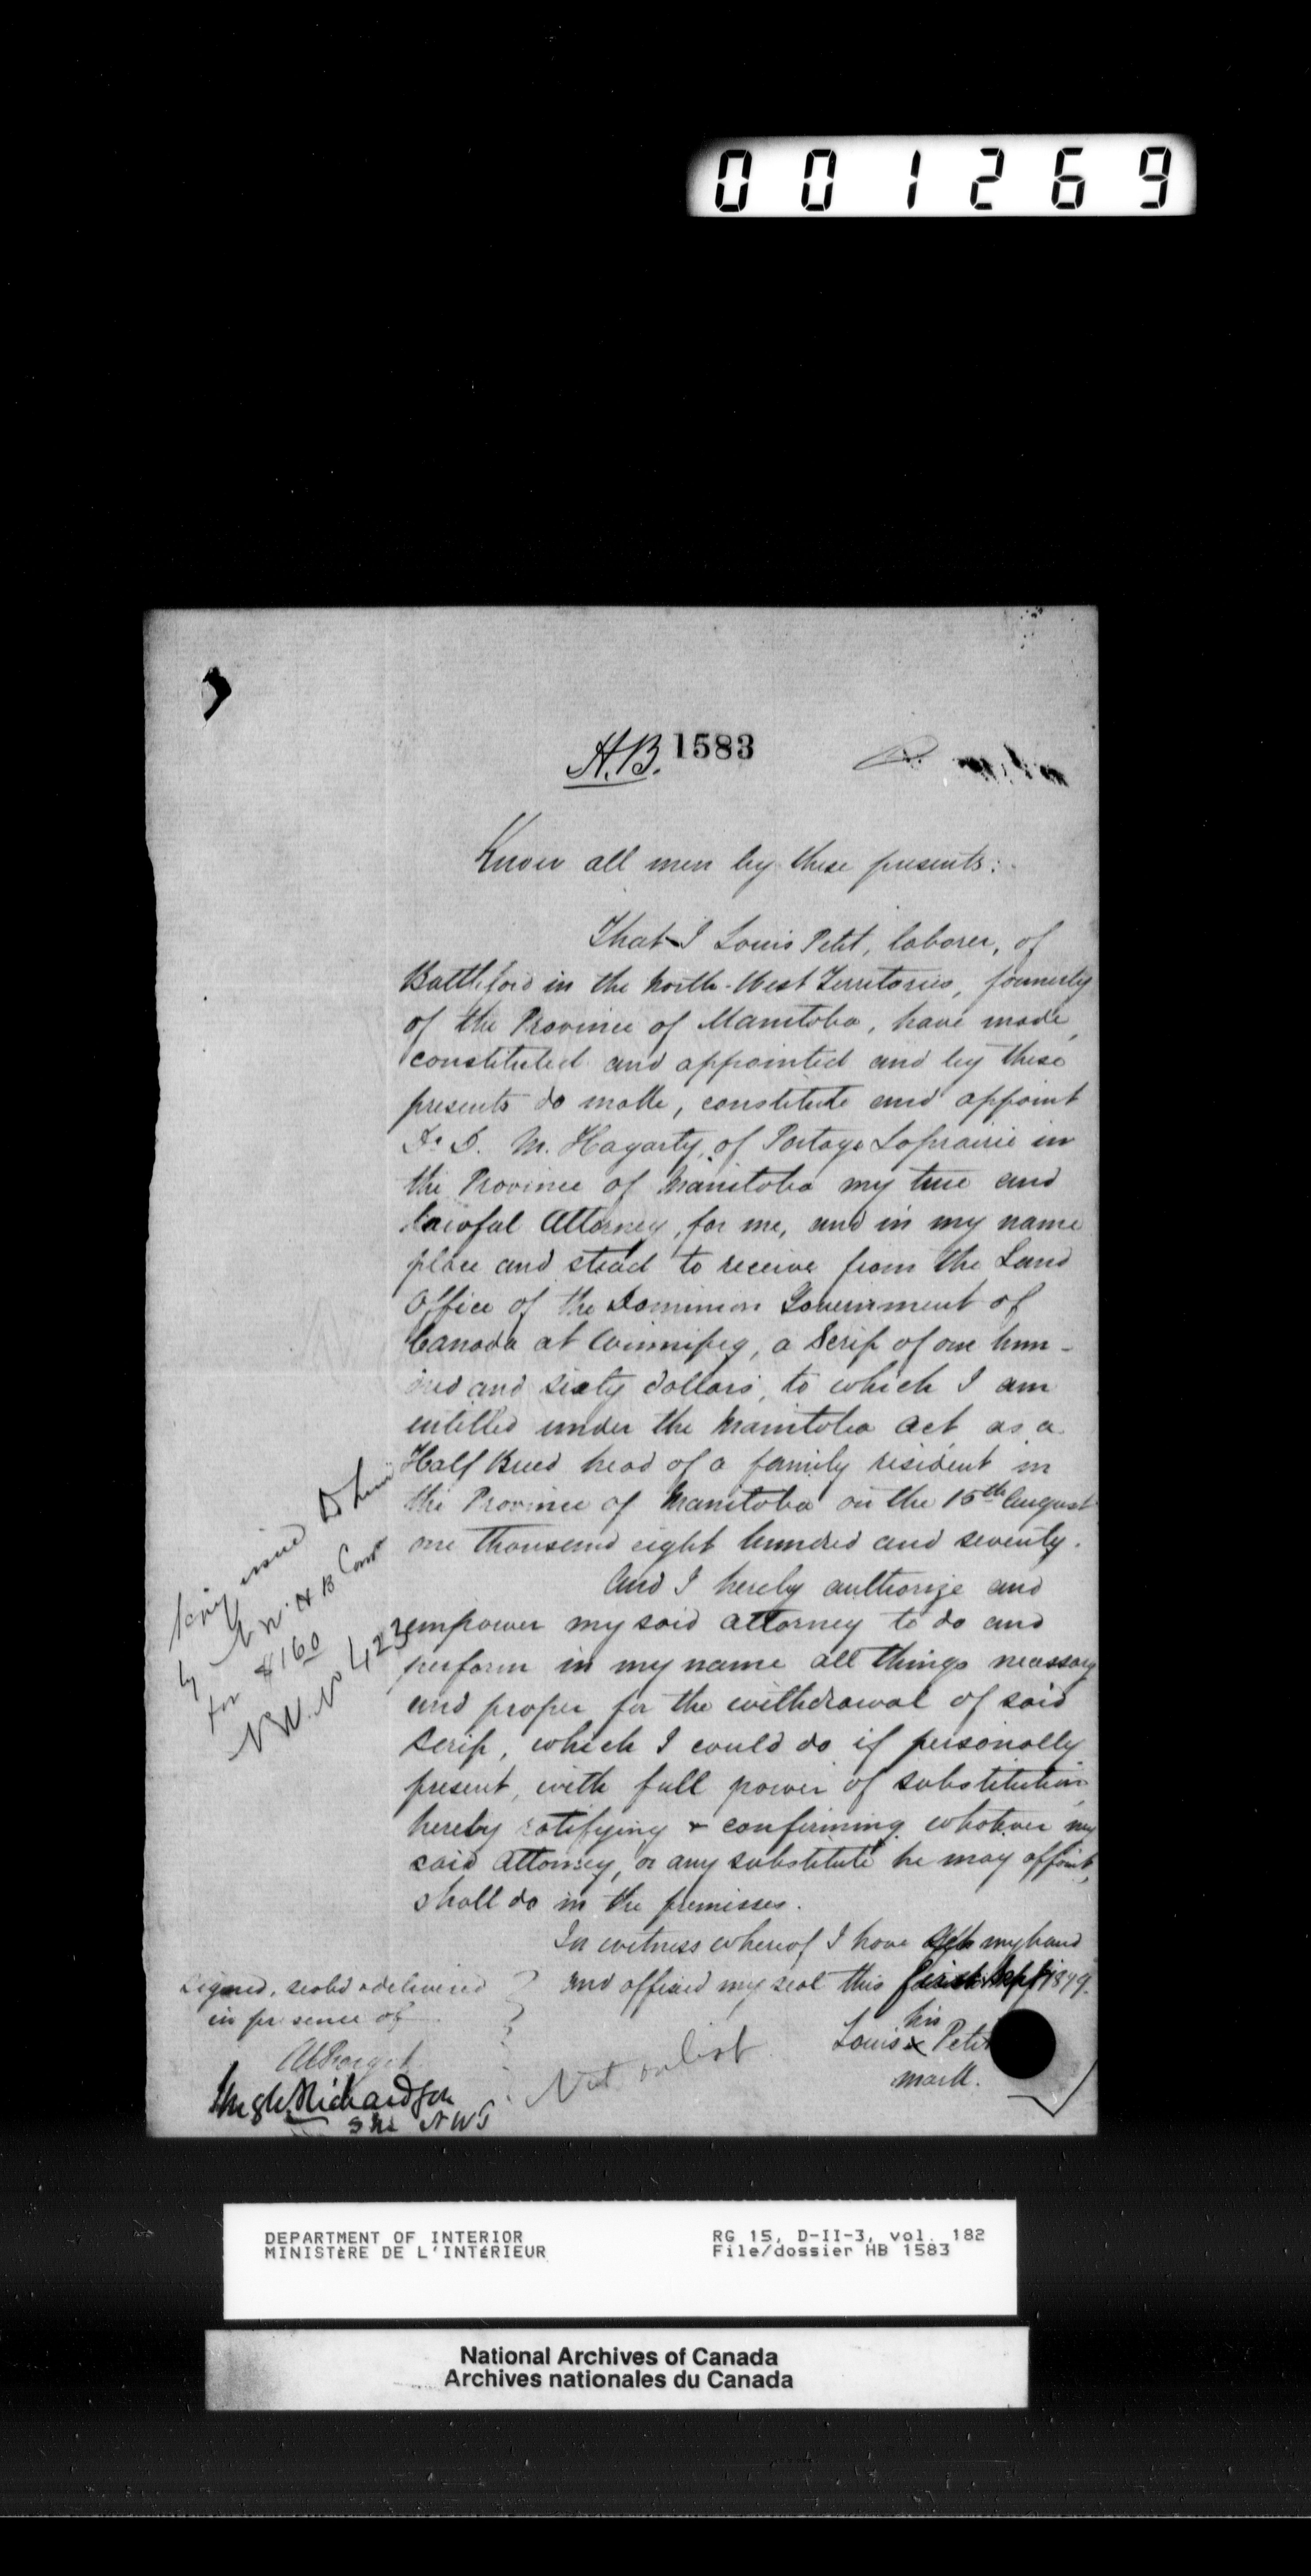 001269
H.B. 1583
Know all men by these presents:
That I Louis Petit, laborer, of
Battleford in the North-West Territories, formerly
of the Province of Manitoba, have made,
constituted and appointed and by these
presents do make, constitute and appoint
Dr D. M. Hagarty, of Portage Laprairie in
the Province of Manitoba my true and
lawful Attorney, for me, and in my name
place and stead to receive from the Land
Office of the Dominion Government of
Canada at Winnipeg, a Scrip of one hun-
dred and sixty dollars, to which I am
entitled under the Manitoba Act as a
Half Breed head of a family resident in
the Province of Manitoba on the 15th August
one thousand eight hundred and seventy.
And I hereby authorize and
empower my said attorney to do and
perform in my name all things necessary
and proper for the withdrawal of said
Scrip, which I could do if personally
present, with full power of substitution,
hereby ratifying & confirming whatever my
said Attorney, or any substitute he may appoint,
shall do in the premisses.
In witness whereof I have set my hand
and affixed my seal this first Sept 1879.
his
Louis x Petit
mark.
Signed, sealed & delivered
in presence of
A E Forget
Hugh Richardson
S M N W T
Not on list
Scrip issued to him
by N W. H B Com
for $160
N.W. No 423
DEPARTMENT OF INTERIOR
MINISTÈRE DE L'INTÉRIEUR
RG 15, D-II-3, vol. 182
File/dossier HB 1583
National Archives of Canada
Archives nationales du Canada